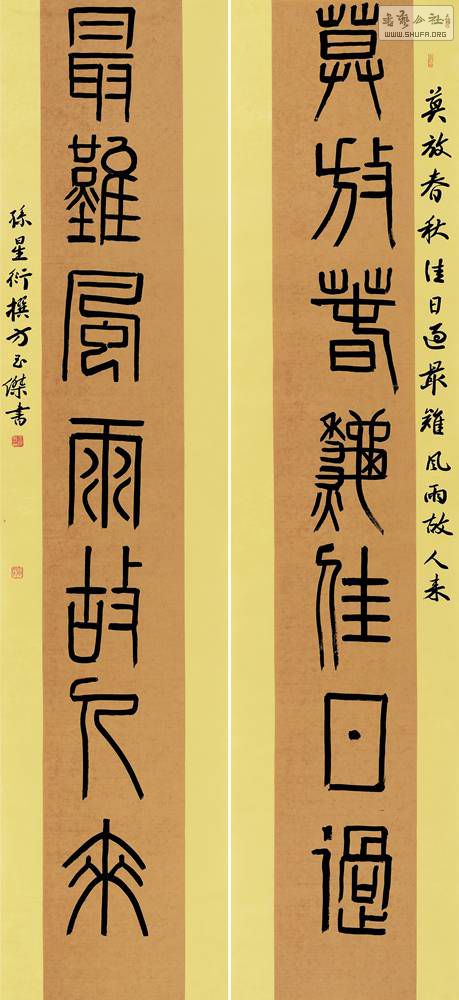 莫放春秋佳日過最難風雨故人来
莫放春秋佳日過
最難風雨故人來
孫星衍撰方玉傑書
書藝公社
WWW.SHUFA.ORG